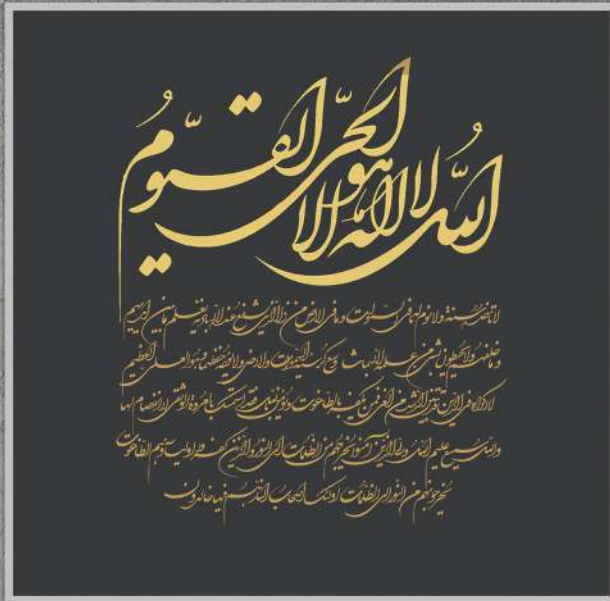 الله لا اله الا هو الحی القیوم
لا تاخذه سنة ولا نوم له ما فی السموات وما فی الارض من ذا الذی یشفع عنده الا باذنه یعلم ما بین ایدیهم
وما خلفهم ولا یحیطون بشیء من علمه الا بما شاء وسع کرسیه السموات والارض ولا یؤده حفظهما وهو العلی العظیم
لا اکراه فی الدین قد تبین الرشد من الغی فمن یکفر بالطاغوت ویؤمن بالله فقد استمسک بالعروة الوثقی لا انفصام لها
والله سمیع علیم الله ولی الذین آمنوا یخرجهم من الظلمات الی النور والذین کفروا اولیاؤهم الطاغوت
یخرجونهم من النور الی الظلمات اولئک اصحاب النار هم فیها خالدون